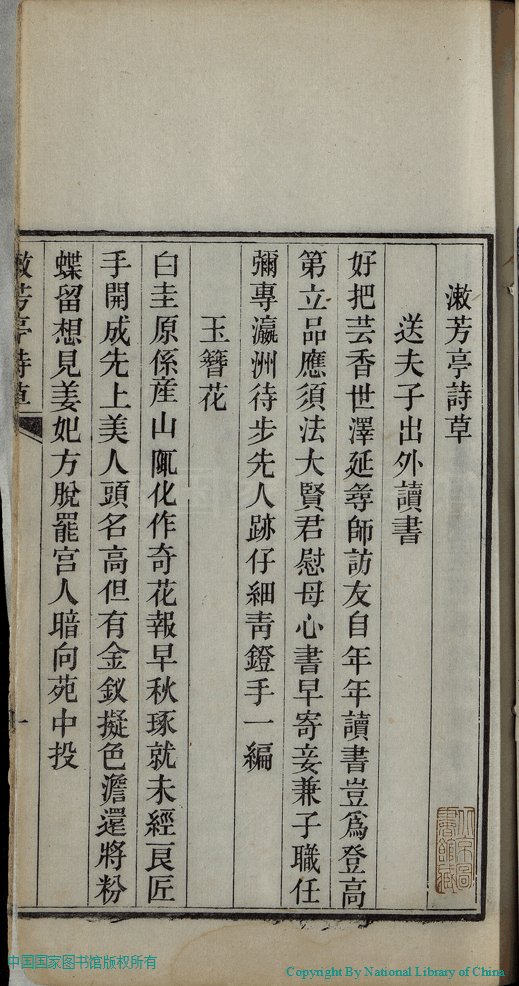 漱芳亭詩草
送夫子出外讀書
好把芸香世澤延尋師訪友自年年讀書豈爲登高
第立品應須法大賢君慰母心書早寄妾兼子職任
彌專瀛洲待步先人跡仔細靑鐙手一編
玉簪花
白圭原係產山陬化作奇花報早秋琢就未經良匠
手開成先上美人頭名高但有金釵擬色澹還將粉
蝶留想見姜妃方脫罷宮人暗向苑中投
漱芳亭詩草
一
中国国家图书馆版权所有
Copyright By National Library of China